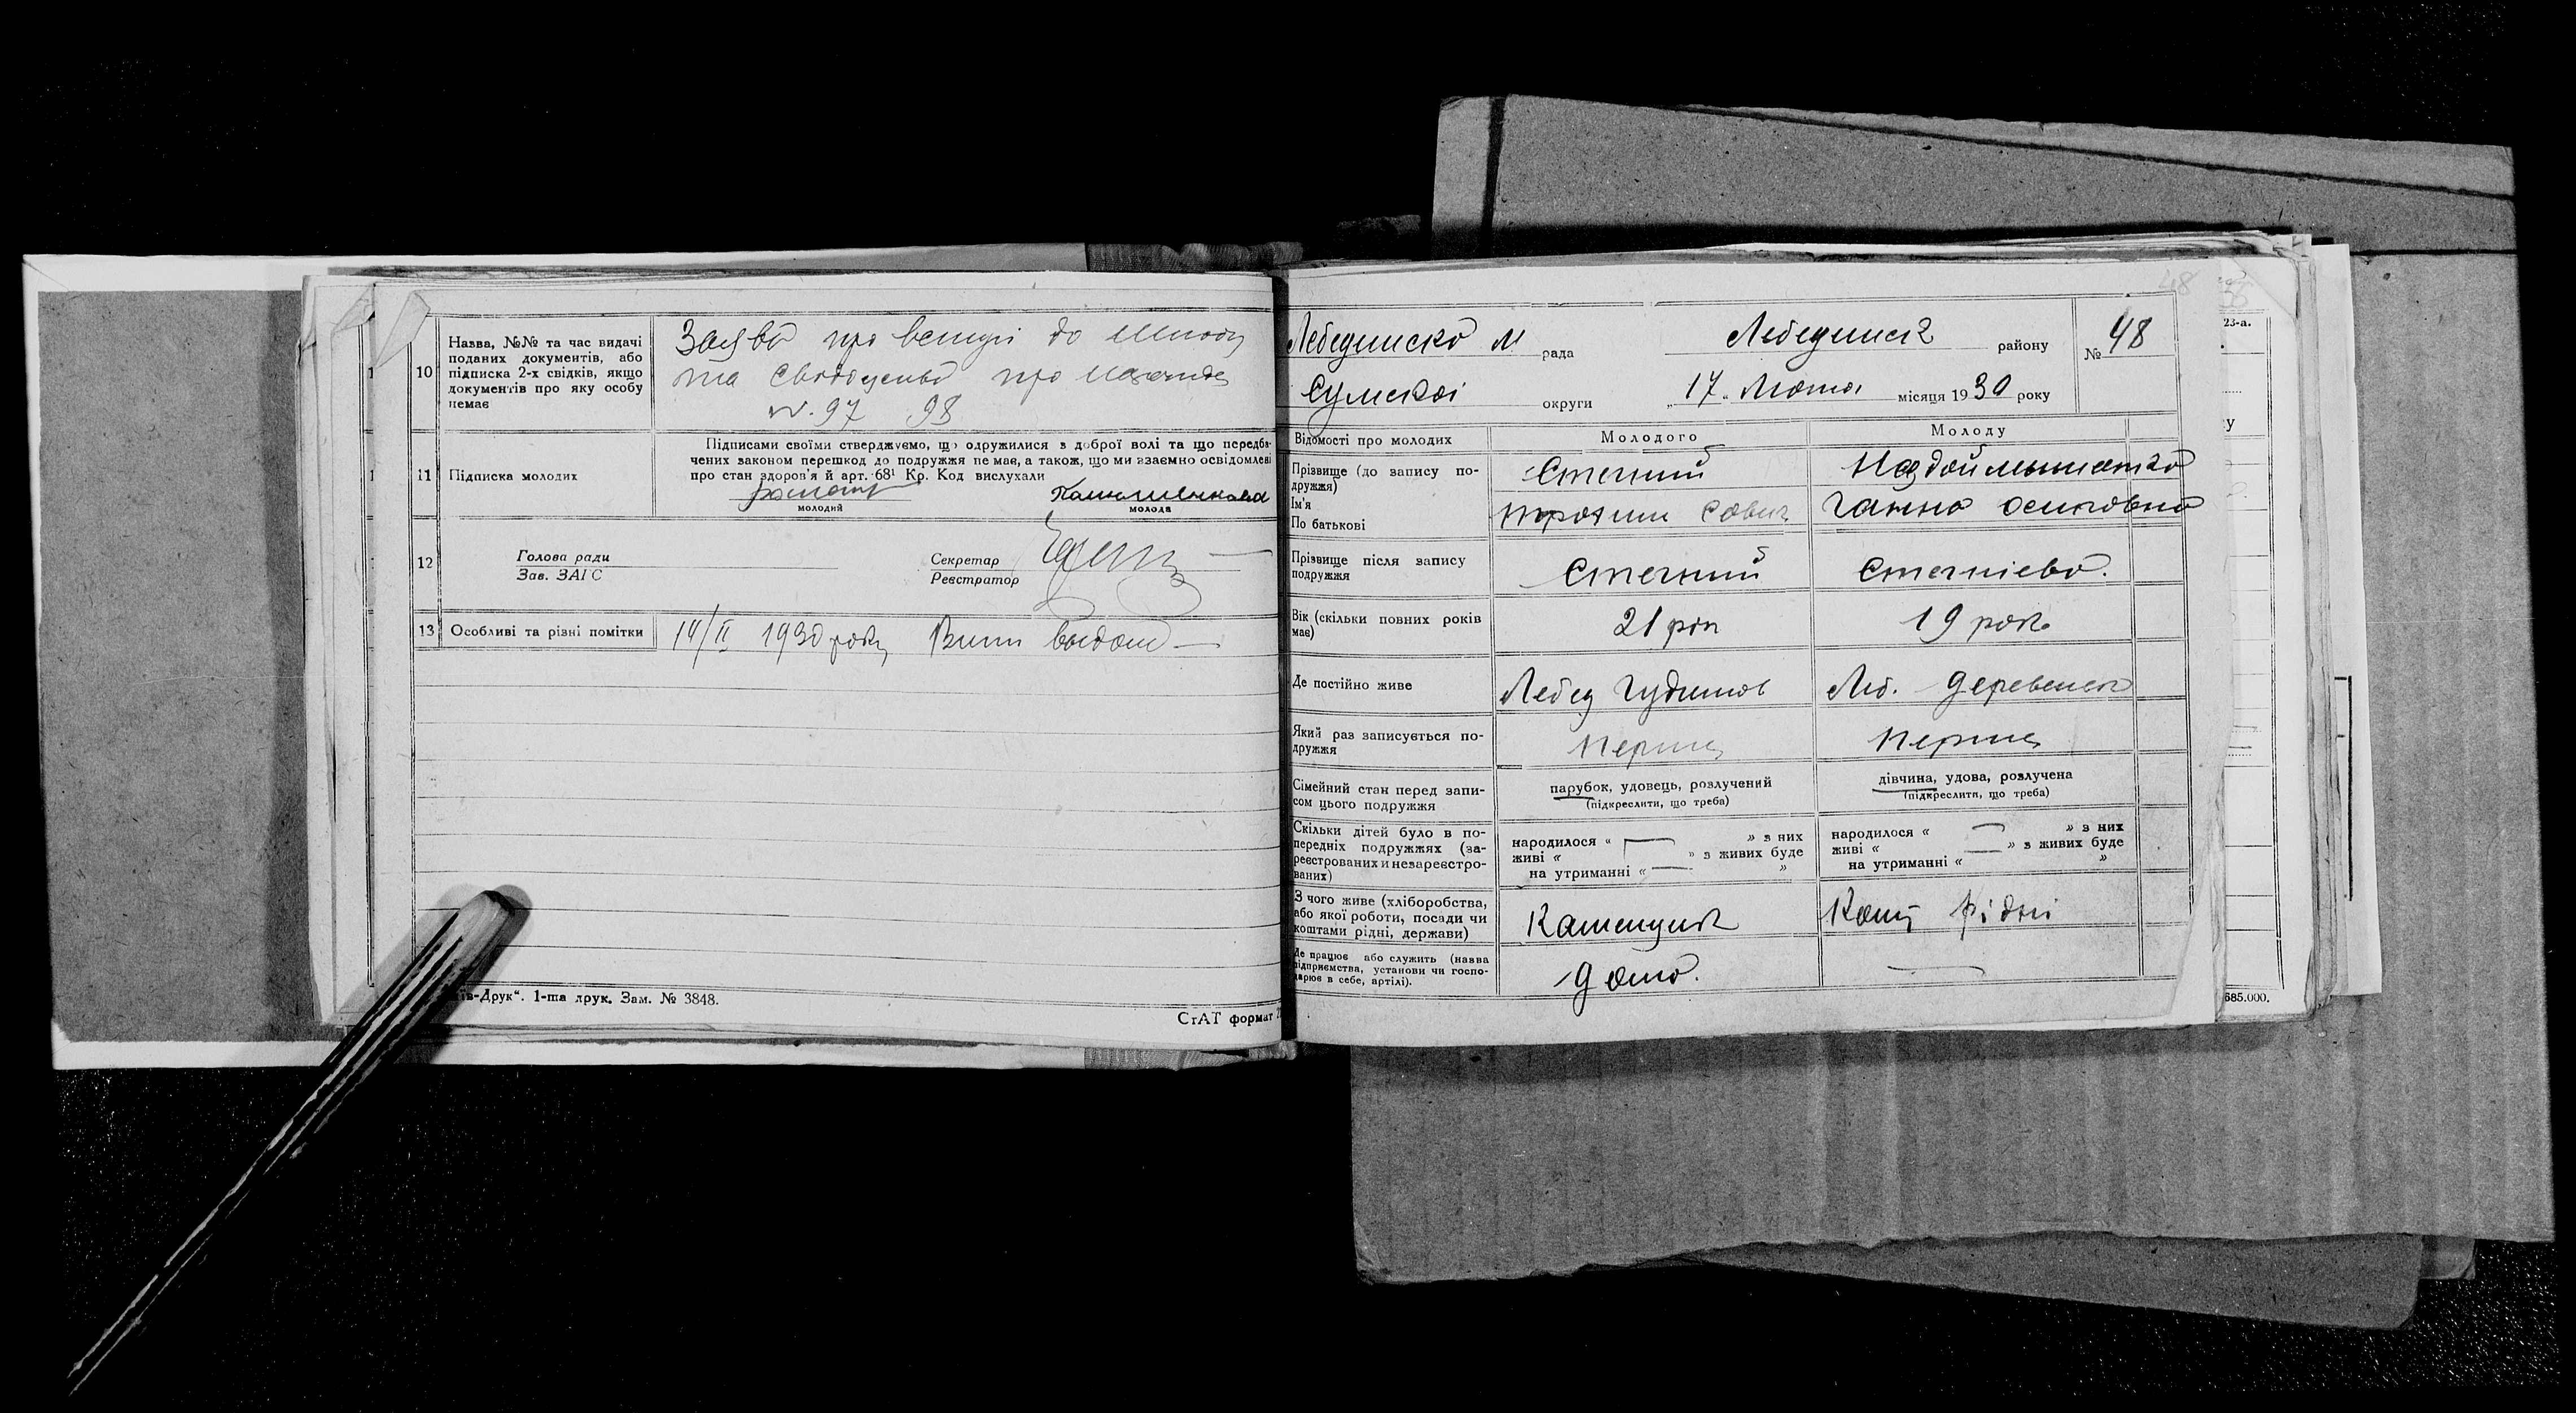 10 Назва, №№ та час видачі
поданих документів, або
підписка 2-х свідків, якщо
документів про яку особу
немає
Заява про вступ до шлюбу
та
про
№. 97 98
11 Підписка молодих
Підписами своїми стверджуємо, що одружилися з доброї волі та що передба-
чених законом перешкод до подружжя немає, а також, що ми взаємно освідомлені
про стан здоров'я й арт. 68¹ Кр. Код вислухали
молодий
молода
12 Голова ради
Зав. ЗАГС
Секретар
Реєстратор
13 Особливі та різні помітки
14/II 1930 року
їв-Друк“. 1-ша друк. Зам. № 3848.
СтАТ формат
48
Лебединско м рада Лебединск района району № 48
Сумскої округи „17„ Лютого місяця 1930 року
Відомості про молодих
Молодого
Молоду
Прізвище (до запису по-
дружжя)
Ім'я
По батькові
Стечний
Савич
Ганна Осиповна
Прізвище після запису
подружжя
Стечний
Стечнієва.
Вік (скільки повних років
має)
21 рік
19 рок.
Де постійно живе
Лебед
Леб.
Який раз записується по-
дружжя
Перший
Перший
Сімейний стан перед запи-
сом цього подружжя
парубок, удовець, розлучений
(підкреслити, що треба)
дівчина, удова, розлучена
(підкреслити, що треба)
Скільки дітей було в по-
передніх подружжях (за-
реєстрованих и незареєстро-
ваних)
народилося « — » з них
живі « — » з живих буде
на утриманні « — »
народилося « — » з них
живі « — » з живих буде
на утриманні « »
З чого живе (хліборобства,
або якої роботи, посади чи
коштами рідні, держави)
Каменщик
Кошт рідні
Де працює або служить (назва
підприємства, установи чи госпо-
дарює в себе, артілі).
дома.
—
23-а.
685.000.